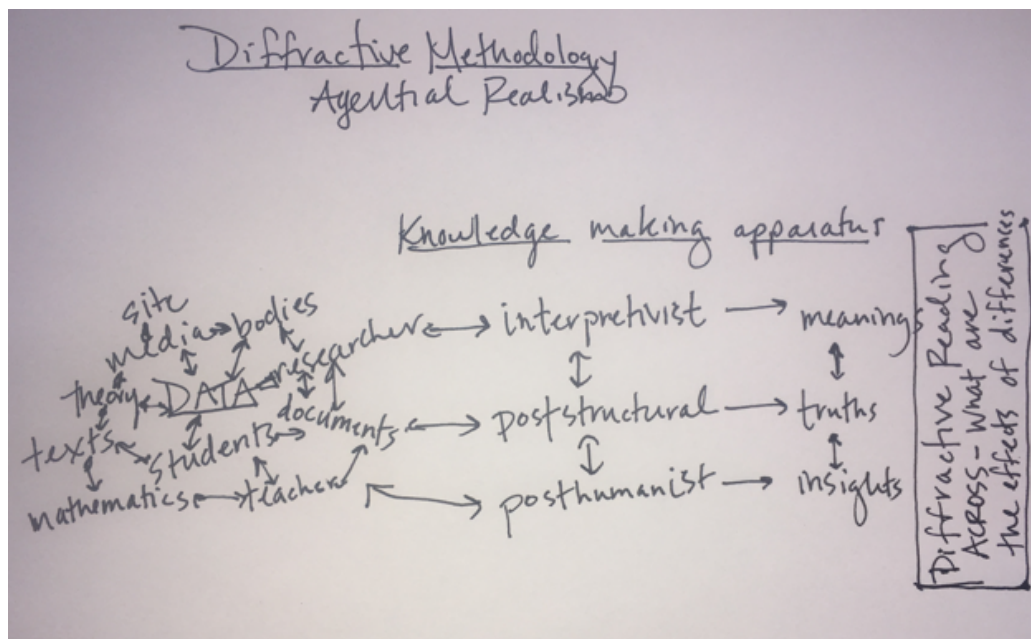 Diffractive Methodology
Agential Realism
Knowledge making apparatus
site
media bodies
theory DATA researcher interpretivist meanings
texts students documents poststructural truths
mathematics teacher posthumanist insights
Diffractive Reading
ACROSS - What are
the effects of differences